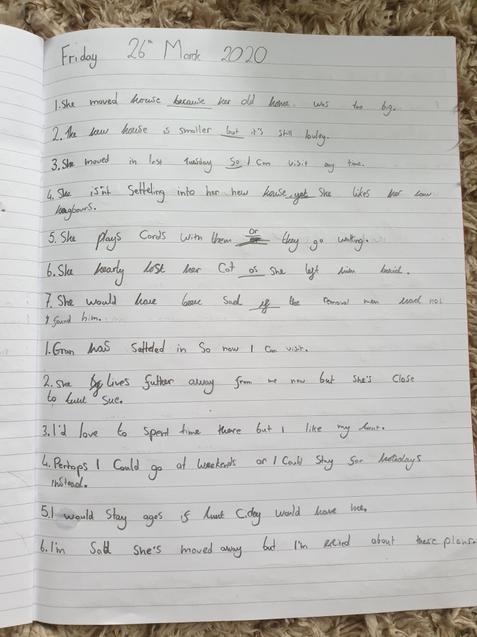 Friday 26th March 2020
1. She moved house because her old home was too big.
2. The new house is smaller but it's still lovley.
3. She moved in last Tuesday So I Can visit any time.
4. She isn't Setteling into her new house yet She likes her new
neigbours.
5. She plays Cards with them or they go walking.
6. She nearly lost her Cat as She left him behind.
7. She would have been Sad if the removal men had not
found him.
1. Gran has Setteled in So now I Can visit.
2. She lives futher away from me now but She's Close
to Sue.
3. I'd love to Spend time there but I like my
4. Perhaps I Could go at weekends or I Could Stay for holidays
instead.
5. I would Stay ages if would have me.
6. I'm Sad She's moved away but I'm about these plans.